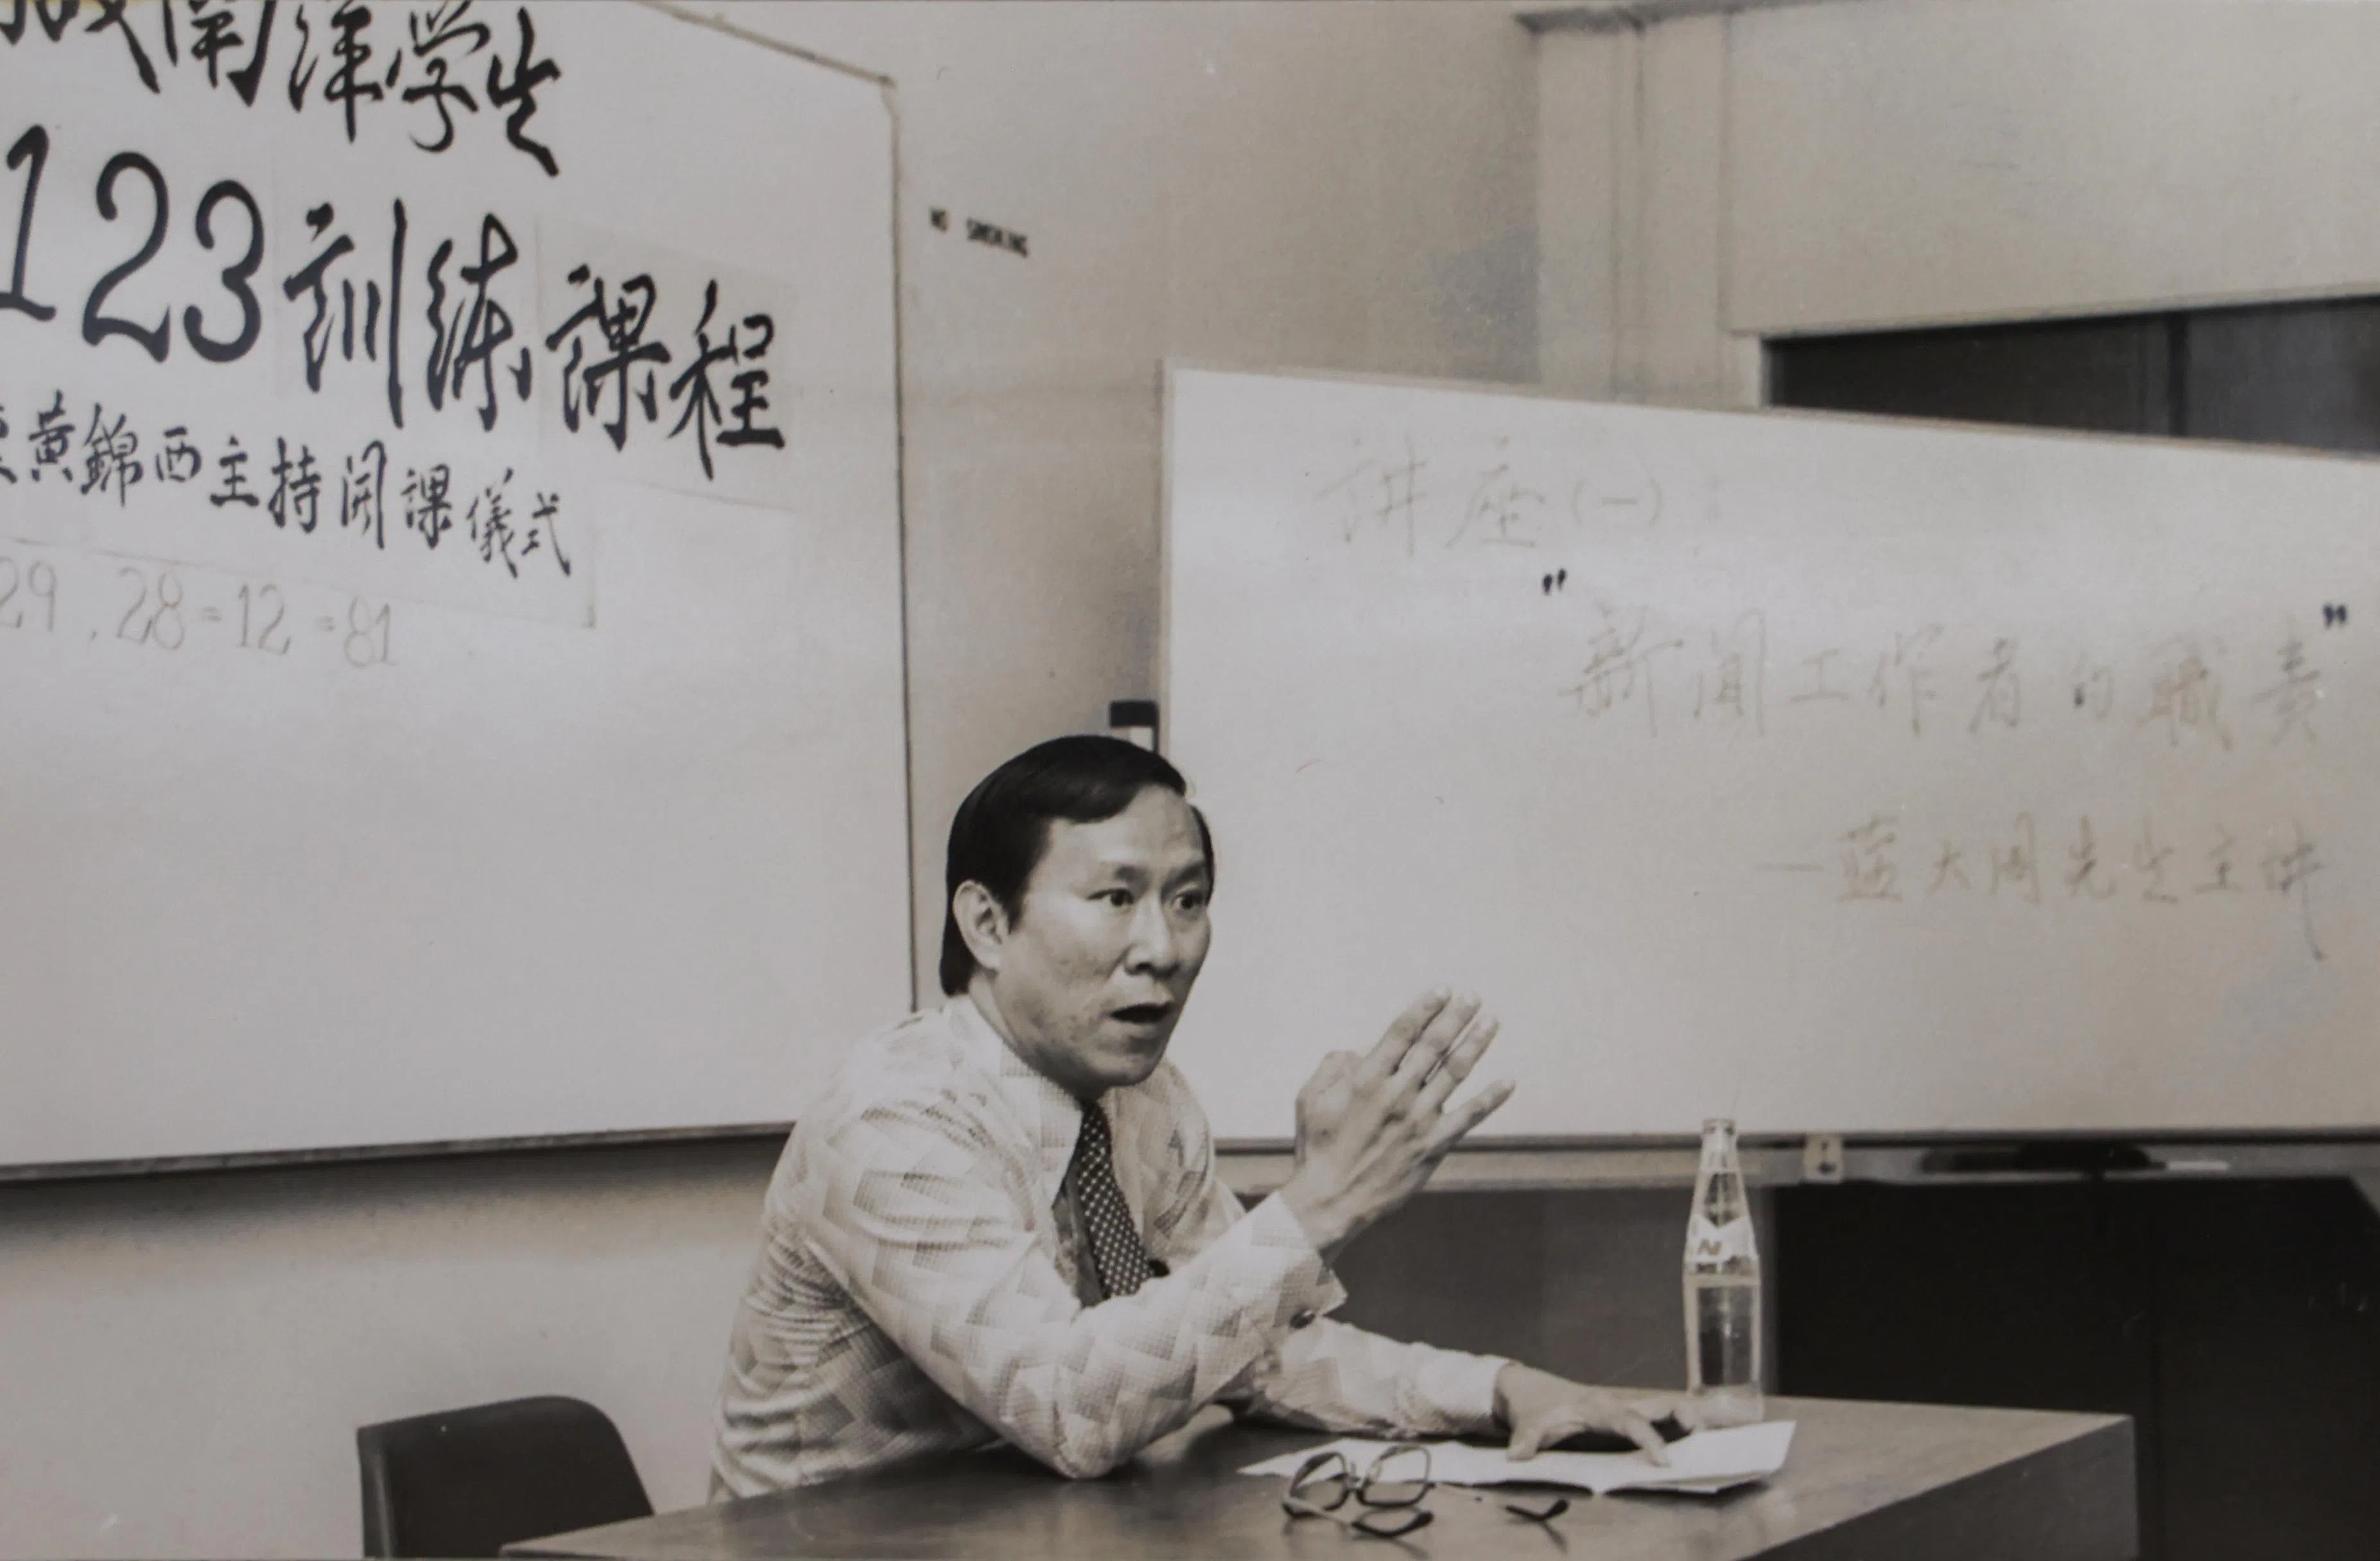 南洋学生
123训练课程
黄錦西主持開課儀式
29,28=12=81
NO SMOKING
讲座(一):
"新闻工作者的職責"
—藍大周先生主讲